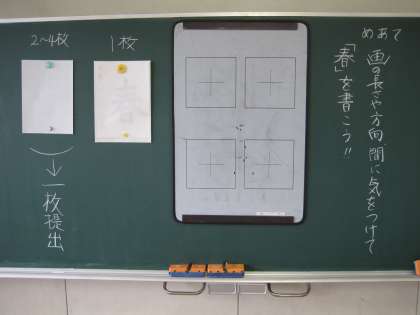 めあて
画の長さや方向、間に気をつけて
「春」を書こう!!
1枚
春
2〜4枚
一枚提出